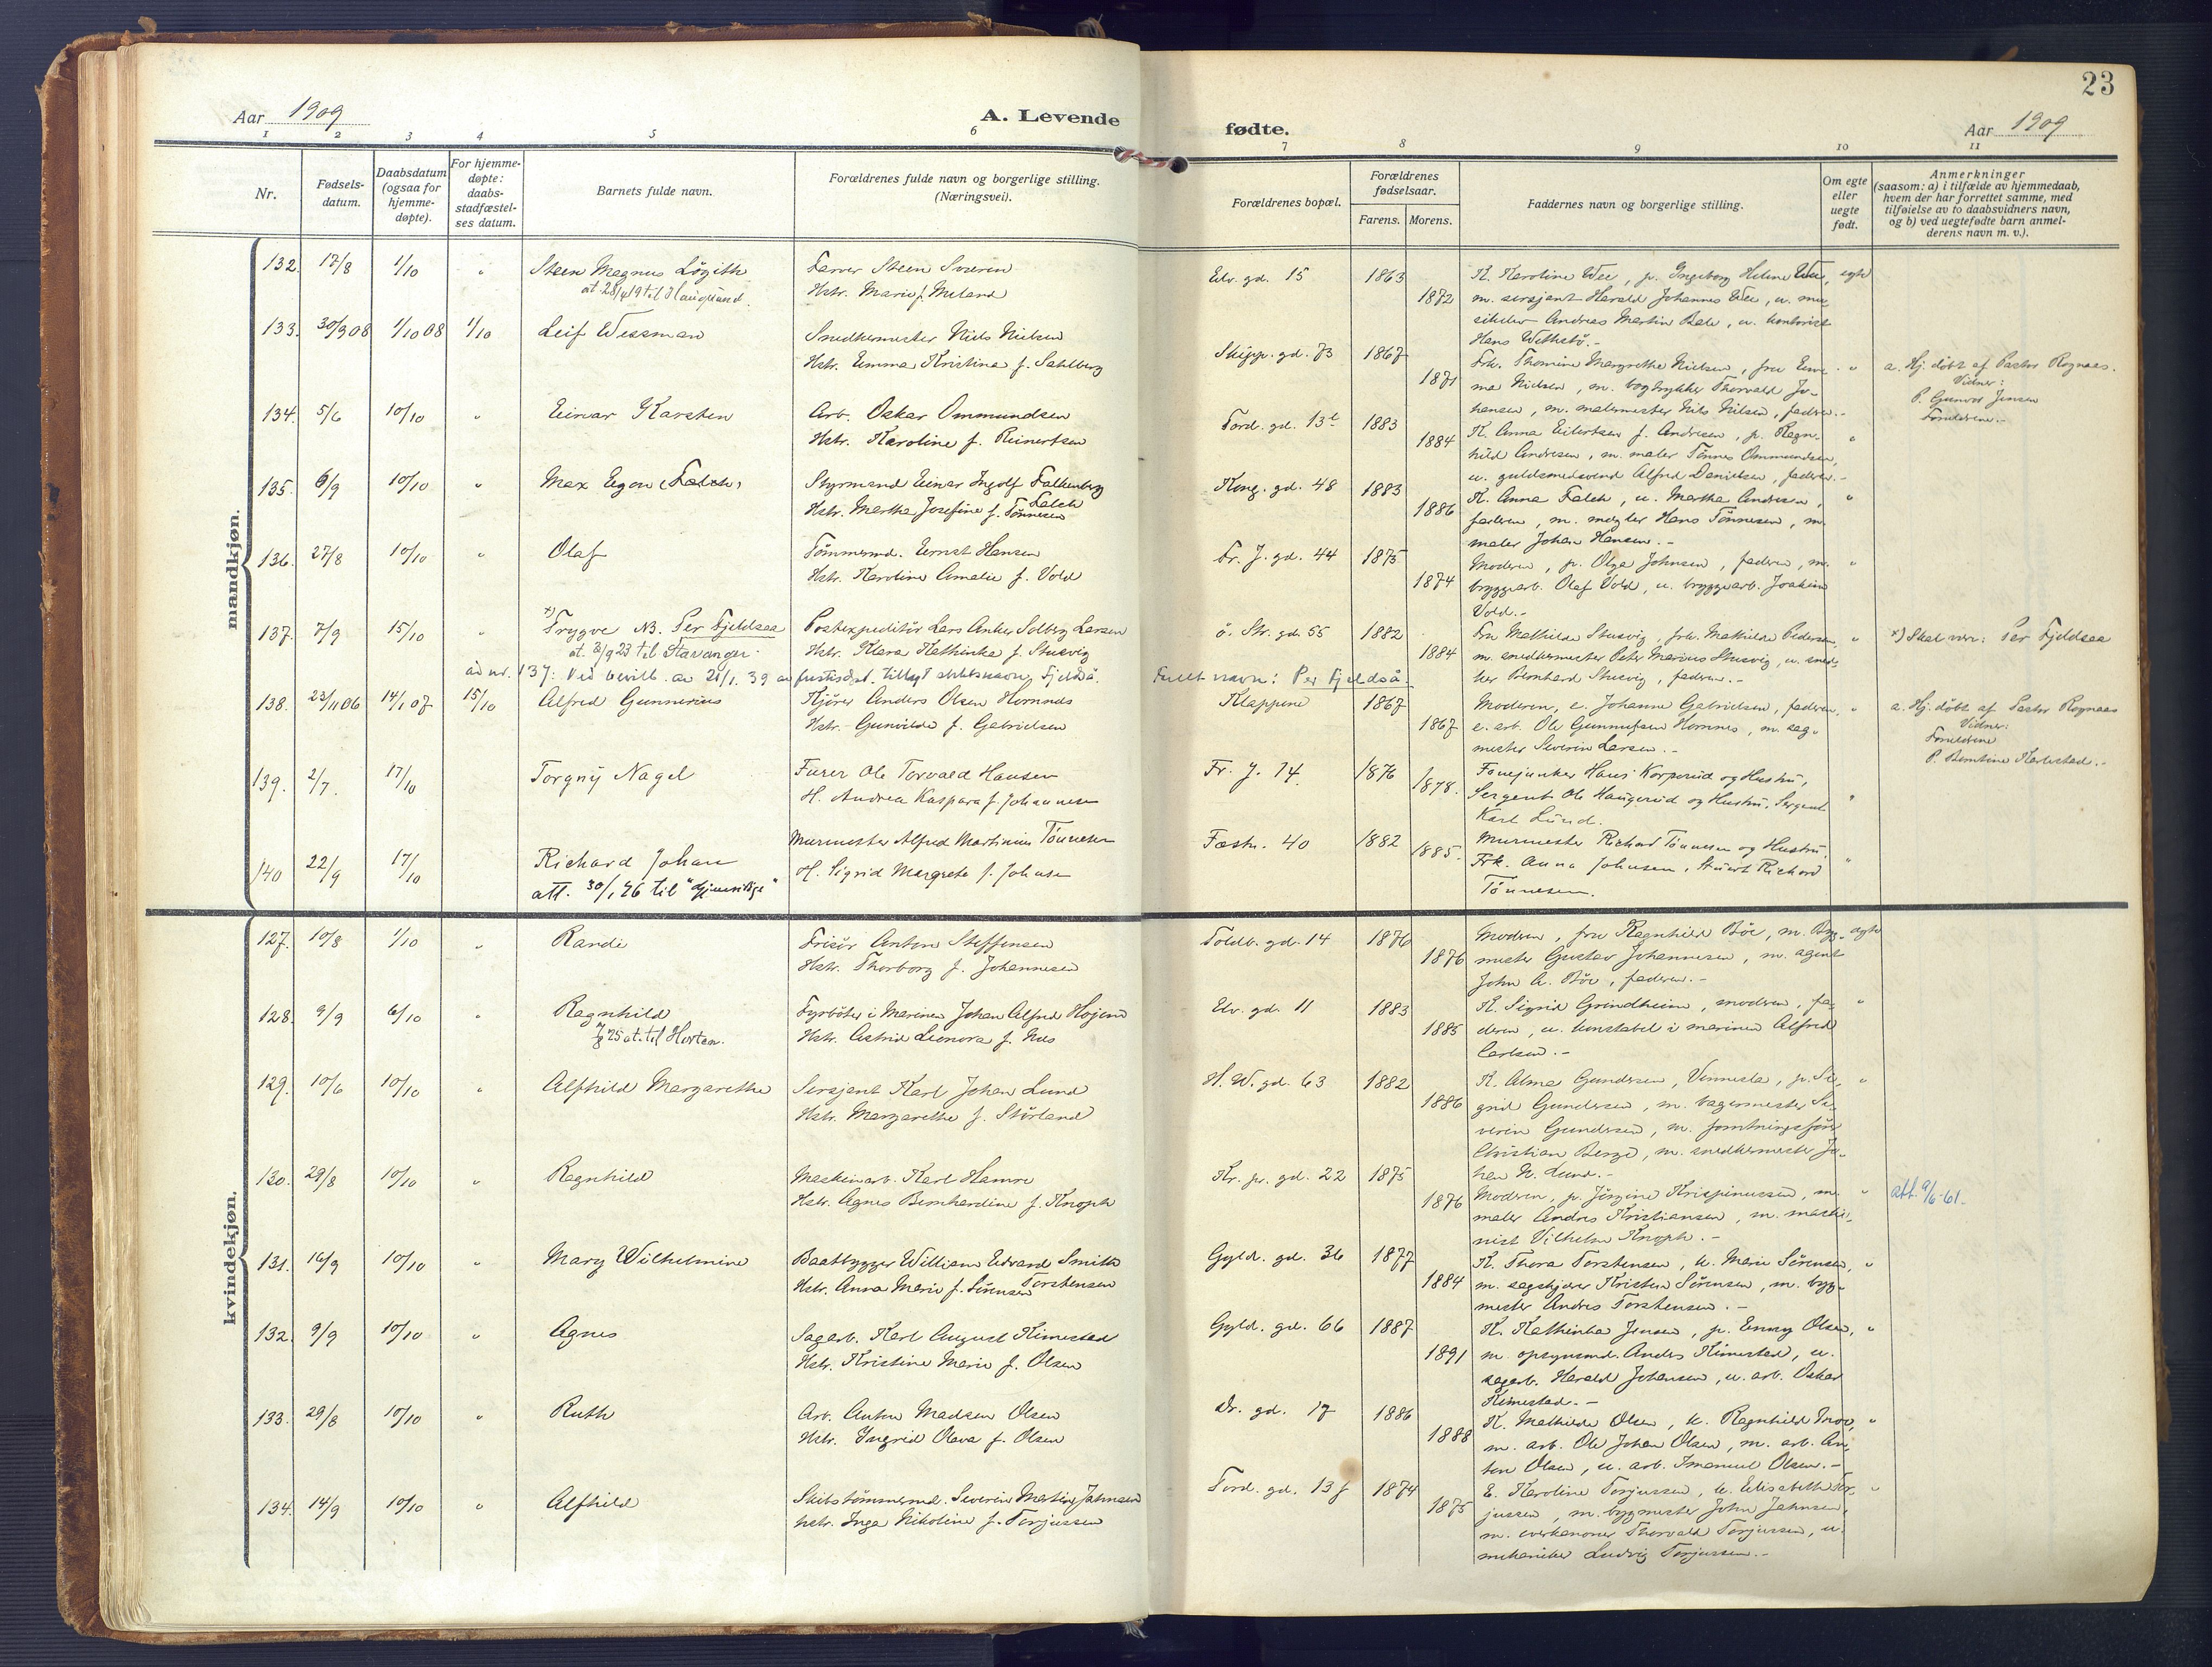 23
Aar 1909
A. Levende
fødte.
Aar 1909
1 2 3 4 5 6 7 8 9 10 11
Nr.
Fødsels-
datum.
Daabsdatum
(ogsaa for
hjemme-
døpte).
For hjemme-
døpte:
daabs-
stadfæstel-
ses datum.
Barnets fulde navn.
Forældrenes fulde navn og borgerlige stilling.
(Næringsvei).
Forældrenes bopæl.
Forældrenes
fødselsaar.
Farens. Morens.
Faddernes navn og borgerlige stilling.
Om egte
eller
uegte
født.
Anmerkninger
(saasom: a) i tilfælde av hjemmedaab,
hvem der har forrettet samme, med
tilføielse av to daabsvidners navn,
og b) ved uegtefødte barn anmel-
derens navn m. v.).
mandkjøn.
132. 17/8 1/10 " Steen Magnus Lögith
at 28/4 19 til Haugesund.
Farver Steen Severin
Hstr. Marie f. Meland
Elv. gd. 15 1863 1872
K. Karoline Wee, p. Ingeborg Helene Wee, egte
m. sersjant Harald Johannes Wee, u. mu-
siker Andreas Martin Bale, u. kontorist
Hans
133. 30/9 08 1/10 08 1/10 Leif Wessman
Snedkermester Niels Nielsen
Hstr. Emma Kristina f. Sahlberg
Skipp. gd. 73 1867 1871
Frk. Thomine Margrethe Nielsen, fru Em-
ma Nielsen, m. bogtrykker Thorvald Jo-
hansen, m. malermester Nils Nilsen, faderen.-
a. Hj. döbt af Pastor Rognaas.
Vidner:
P. Gunvor Jensen
Forældrene.-
134. 5/6 10/10 " Einar Karsten
Arb. Oskar Ommundsen
Hstr. Karoline f. Reinertsen
Tord. gd. 13 1883 1884
K. Anna Eilertsen f. Andresen, p. Ragn-
hild Andresen, m. maler Tönnes Ommundsen,
u. guldsmedsvend Alfred Danielsen, faderen.-
135. 6/9 10/10 " Max Egon (Falch)
Styrmand Einar Ingolf Falkenberg
Falch
Hstr. Martha Josefine f. Tönnesen
Kong. gd. 48 1883 1886
K. Anna Falch, u. Martha Andresen,
faderen, m. mægler Hans Tönnesen, m.
maler Johan Hansen.-
136. 27/8 10/10 " Olaf
Tömmermd. Ernst Hansen
Hstr. Karoline Amalie f. Vold
Fr. J. gd. 44 1875 1874
Moderen, p. Olga Johnsen, faderen, m.
bryggearb. Olaf Vold, u. bryggearb. Joakim
Vold.-
137. 7/9 15/10 " x) Trygve NB. Per Fjeldsaa
at. 3/9 23 til Stavanger.
Postexpeditör Lars Anker Solberg Larsen
Hstr. Klara Kathinka f. Stusvig
ö. Str. gd. 55 1882 1884
Fru Mathilde Stusvig, frk. Mathilde Pedersen,
m. snedkermester Peter Marius Stusvig, u. sned-
ker Bernhard Stusvig, faderen.-
x) Skal være: Per Fjeldsaa
ad nr. 137: Ved bevilln. av 21/1. 39 av justisdept. tillagt slektsnavn Fjeldså. Fullt navn: Per Fjeldså.
138. 23/11 06 14/1 07 15/10 Alfred Gunnerius
Kjörer Anders Olsen Homnes
Hstr. Gunvilde f. Gabrielsen
Klappene 1867 1867
Moderen, e. Johanne Gabrielsen, faderen,
e. arb. Ole Gunnufsen Homnes, m. sag-
mester Severin Larsen.-
a. Hj. döbt af Pastor Rognaas
Vidner:
Forældrene
P. Berntine Karlestad.-
139. 2/7. 17/10 Torgny Nagel
Furer Ole Torvald Hansen
H. Andrea Kaspara f. Johannesen
Fr. J. 14. 1876 1878.
Fanejunker Hans Korperud og Hustru,
Sergent Ole Haugerud og Hustru, Sergent
Karl Lund.
140 22/9 17/10 Richard Johan
att. 30/1 46 til
Murmester Alfred Martinius Tönnesen
H. Sigrid Margrete f. Johnsen
Fæstn. 40 1882 1885.
Murmester Richard Tönnesen og Hustru,
Frk. Anna Johnsen, Richard
Tönnesen.
kvindekjøn.
127. 10/8 1/10 " Randi
Frisör Anton Steffensen
Hstr. Thorborg f. Johannesen
Toldb. gd. 14 1876 1876
Moderen, fru Ragnhild Böe, m. Byg- egte
mester Gustav Johannesen, m. agent
John A. Böe, faderen.-
128. 9/9 6/10 " Ragnhild
25 at. til Horten.
Fyrböter i Marinen Johan Alfred Hojem
Hstr. Astrid Leonora f. Næs
Elv. gd. 11 1883 1885
K. Sigrid Grindheim, moderen, fa-
deren, u. konstabel i marinen Alfred
Carlsen.-
129. 10/6 10/10 " Alfhild Margarethe
Sersjant Karl Johan Lund
Hstr. Margarethe f. Störland
H. W. gd. 63 1882 1886
K. Alma Gundersen, Vennesla, p. Si-
grid Gundersen, m. bagermester Se-
verin Gundersen, m. forretningsförer
Christian Berge, m. snedkermester Jo-
han N. Lund.-
130. 29/8 10/10 " Ragnhild
Maskinarb. Karl Hamre
Hstr. Agnes Bernhardine f. Knoph
Kr. pr. gd. 22 1875 1876
Moderen, p. Jörgine Krispinussen, m.
maler Andres Kristiansen, m. maski-
nist Vilhelm Knoph.-
att. 9/6-61.
131. 16/9 10/10 " Mary Wilhelmine
Baatbygger William Edvard Smith
Torstensen
Hstr. Anna Marie f. Sörensen
Gyld. gd. 36 1877 1884
K. Thora Torstensen, k. Marie Sörensen,
m. sagskjærer Kristen Sörensen, m. byg-
mester Andres Torstensen.-
132. 9/9 10/10 " Agnes
Sagarb. Karl August Kimestad
Hstr. Kristine Marie f. Olsen
Gyld. gd. 66 1887 1891
K. Kathinka Jensen, p. Enny Olsen,
m. opsynsmd. Andrs Kimestad, u.
sagarb. Harald Johansen, u. arb. Oskar
Kimestad.-
133. 29/8 10/10 " Ruth
Arb. Anton Madsen Olsen
Hstr. Ingrid Olava f. Olsen
Dr. gd. 17 1886 1888
K. Mathilde Olsen, k. Ragnhild Moe,
m. arb. Ole Johan Olsen, m. arb. An-
ton Olsen, u. arb. Imanuel Olsen.-
134. 14/9 10/10 " Alfhild
Skibstömmermd. Severin Martin Jahnsen
Hstr. Inga Nikoline f. Torjussen
Tord. gd. 13 f 1874 1875
E. Karoline Torjussen, k. Elisabeth Tor-
jussen, m. bygmester John Jahnsen,
m. overkanoner Thorvald Torjussen, u.
mekaniker Ludvig Torjussen.-